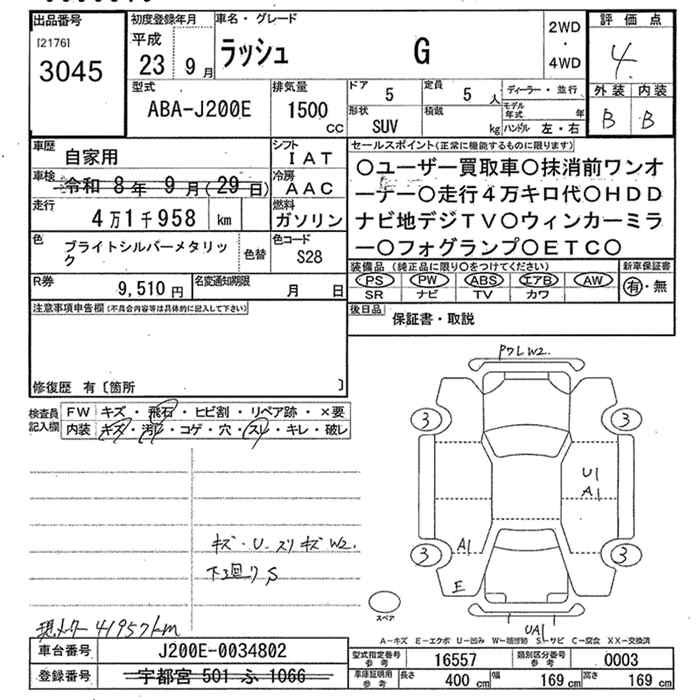 出品番号 初度登録年月 車名・グレード 2WD・4WD 評価点
[2176] 3045 平成 23 9月 ラッシュ G 4
型式 排気量 ドア 5 定員 5人 ディーラー・並行 外装 内装
ABA-J200E 1500 CC 形状 SUV 積載 kg モデル年式 年 ハンドル 左・右 B B
車歴 自家用 シフト IAT セールスポイント(正常に機能するものに限ります)
車検 令和 8年 9月(29日) 冷房 AAC
○ユーザー買取車○抹消前ワンオ
ーナー○走行4万キロ代○HDD
ナビ地デジTV○ウィンカーミラ
ー○フォグランプ○ETC○
走行 4万1千958 km 燃料 ガソリン
色 ブライトシルバーメタリック 色替 色コード S28
装備品(純正品に限り○をつけてください) 新車保証書
PS PW ABS エアB AW 有・無
SR ナビ TV カワ
R券 9,510円 名変通知期限 月 日
後日品 保証書・取説
注意事項申告欄(不具合内容等は具体的に記入して下さい)
修復歴 有〔箇所 〕
検査員記入欄 FW キズ・飛石・ヒビ割・リペア跡・×要
内装 キズ・汚れ・コゲ・穴・スレ・キレ・破レ
キズ・U・スリキズW2.
下廻りS
現メーター 41957km
PクLW2.
3 3
U1
A1
A1
3 3
E
スペア
UA1
A-キズ E-エクボ U-凹み W-補修跡 S-サビ C-腐食 XX-交換済
車台番号 J200E-0034802
登録番号 宇都宮 501 ふ 1066
型式指定番号 参考 16557 類別区分番号 参考 0003
車庫証明用 参考 長さ 400 cm 幅 169 cm 高さ 169 cm